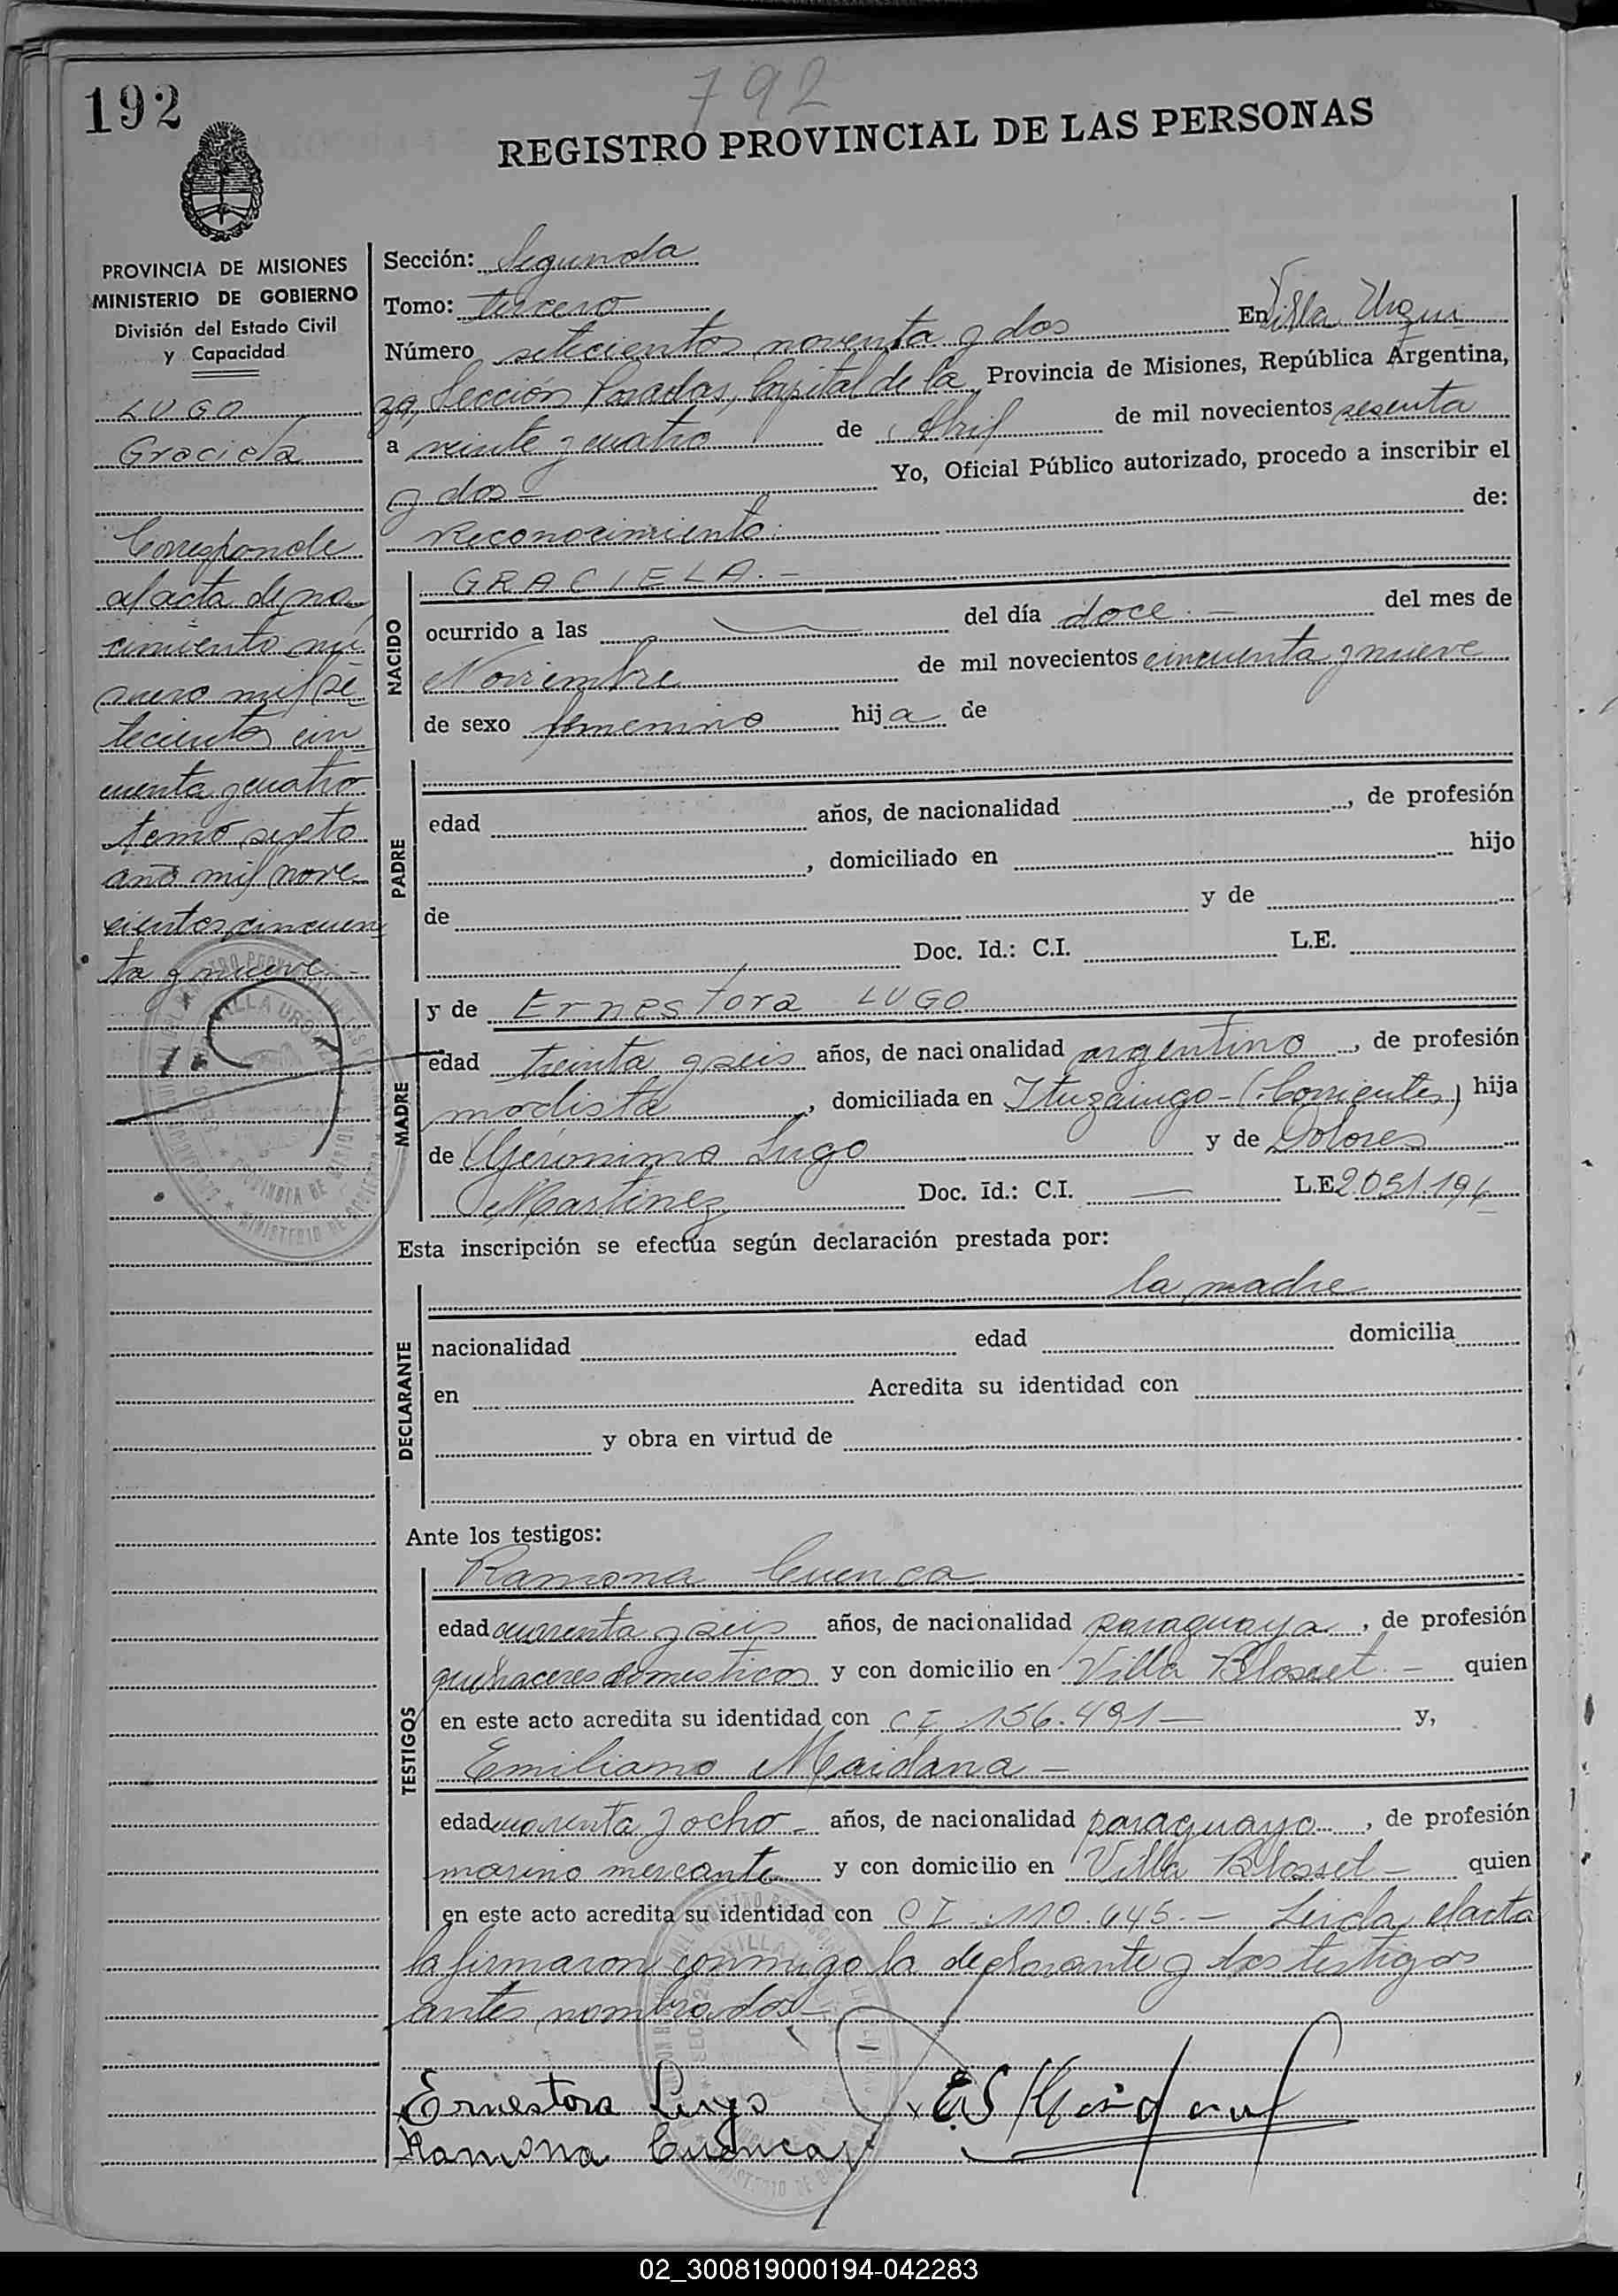 792
192
REGISTRO PROVINCIAL DE LAS PERSONAS
PROVINCIA DE MISIONES
MINISTERIO DE GOBIERNO
División del Estado Civil
y Capacidad
LUGO
Graciela
Corresponde
al acta de na
cimiento nú
mero mil se
tecientos cin
cuenta y cuatro
tomo sexto
año mil nove
cientos cincuen
ta y nueve
Sección: Segunda
Tomo: tercero
Número setecientos noventa y dos En Villa Urqui
za, Sección Posadas, Capital de la Provincia de Misiones, República Argentina,
a veinte y cuatro de Abril de mil novecientos sesenta
y dos - Yo, Oficial Público autorizado, procedo a inscribir el
reconocimiento de:
NACIDO
GRACIELA.-
ocurrido a las — del día doce.- del mes de
Noviembre de mil novecientos cincuenta y nueve
de sexo femenino hija de
PADRE
edad años, de nacionalidad , de profesión
, domiciliado en hijo
de y de
Doc. Id.: C.I. L.E.
MADRE
y de Ernestora LUGO
edad treinta y seis años, de nacionalidad argentino, de profesión
modista, domiciliada en Ituzaingo - (Corrientes) hija
de Gerónimo Lugo y de Dolores
Martinez Doc. Id.: C.I. — L.E.
Esta inscripción se efectúa según declaración prestada por:
DECLARANTE
la madre
nacionalidad edad domicilia
en Acredita su identidad con
y obra en virtud de
Ante los testigos:
TESTIGOS
Ramona Cuenca
edad cuarenta y seis años, de nacionalidad paraguaya, de profesión
quehaceres domesticos y con domicilio en Villa Blosset.- quien
en este acto acredita su identidad con CI 156.491— y,
Emiliano Maidana -
edad cuarenta y ocho - años, de nacionalidad paraguayo, de profesión
marino mercante y con domicilio en Villa Blosset - quien
en este acto acredita su identidad con CI 110.645.- Leida el acta
la firmaron conmigo la declarante y los testigos
antes nombrados -
Ernestora Lugo
Ramona Cuenca
02_300819000194-042283